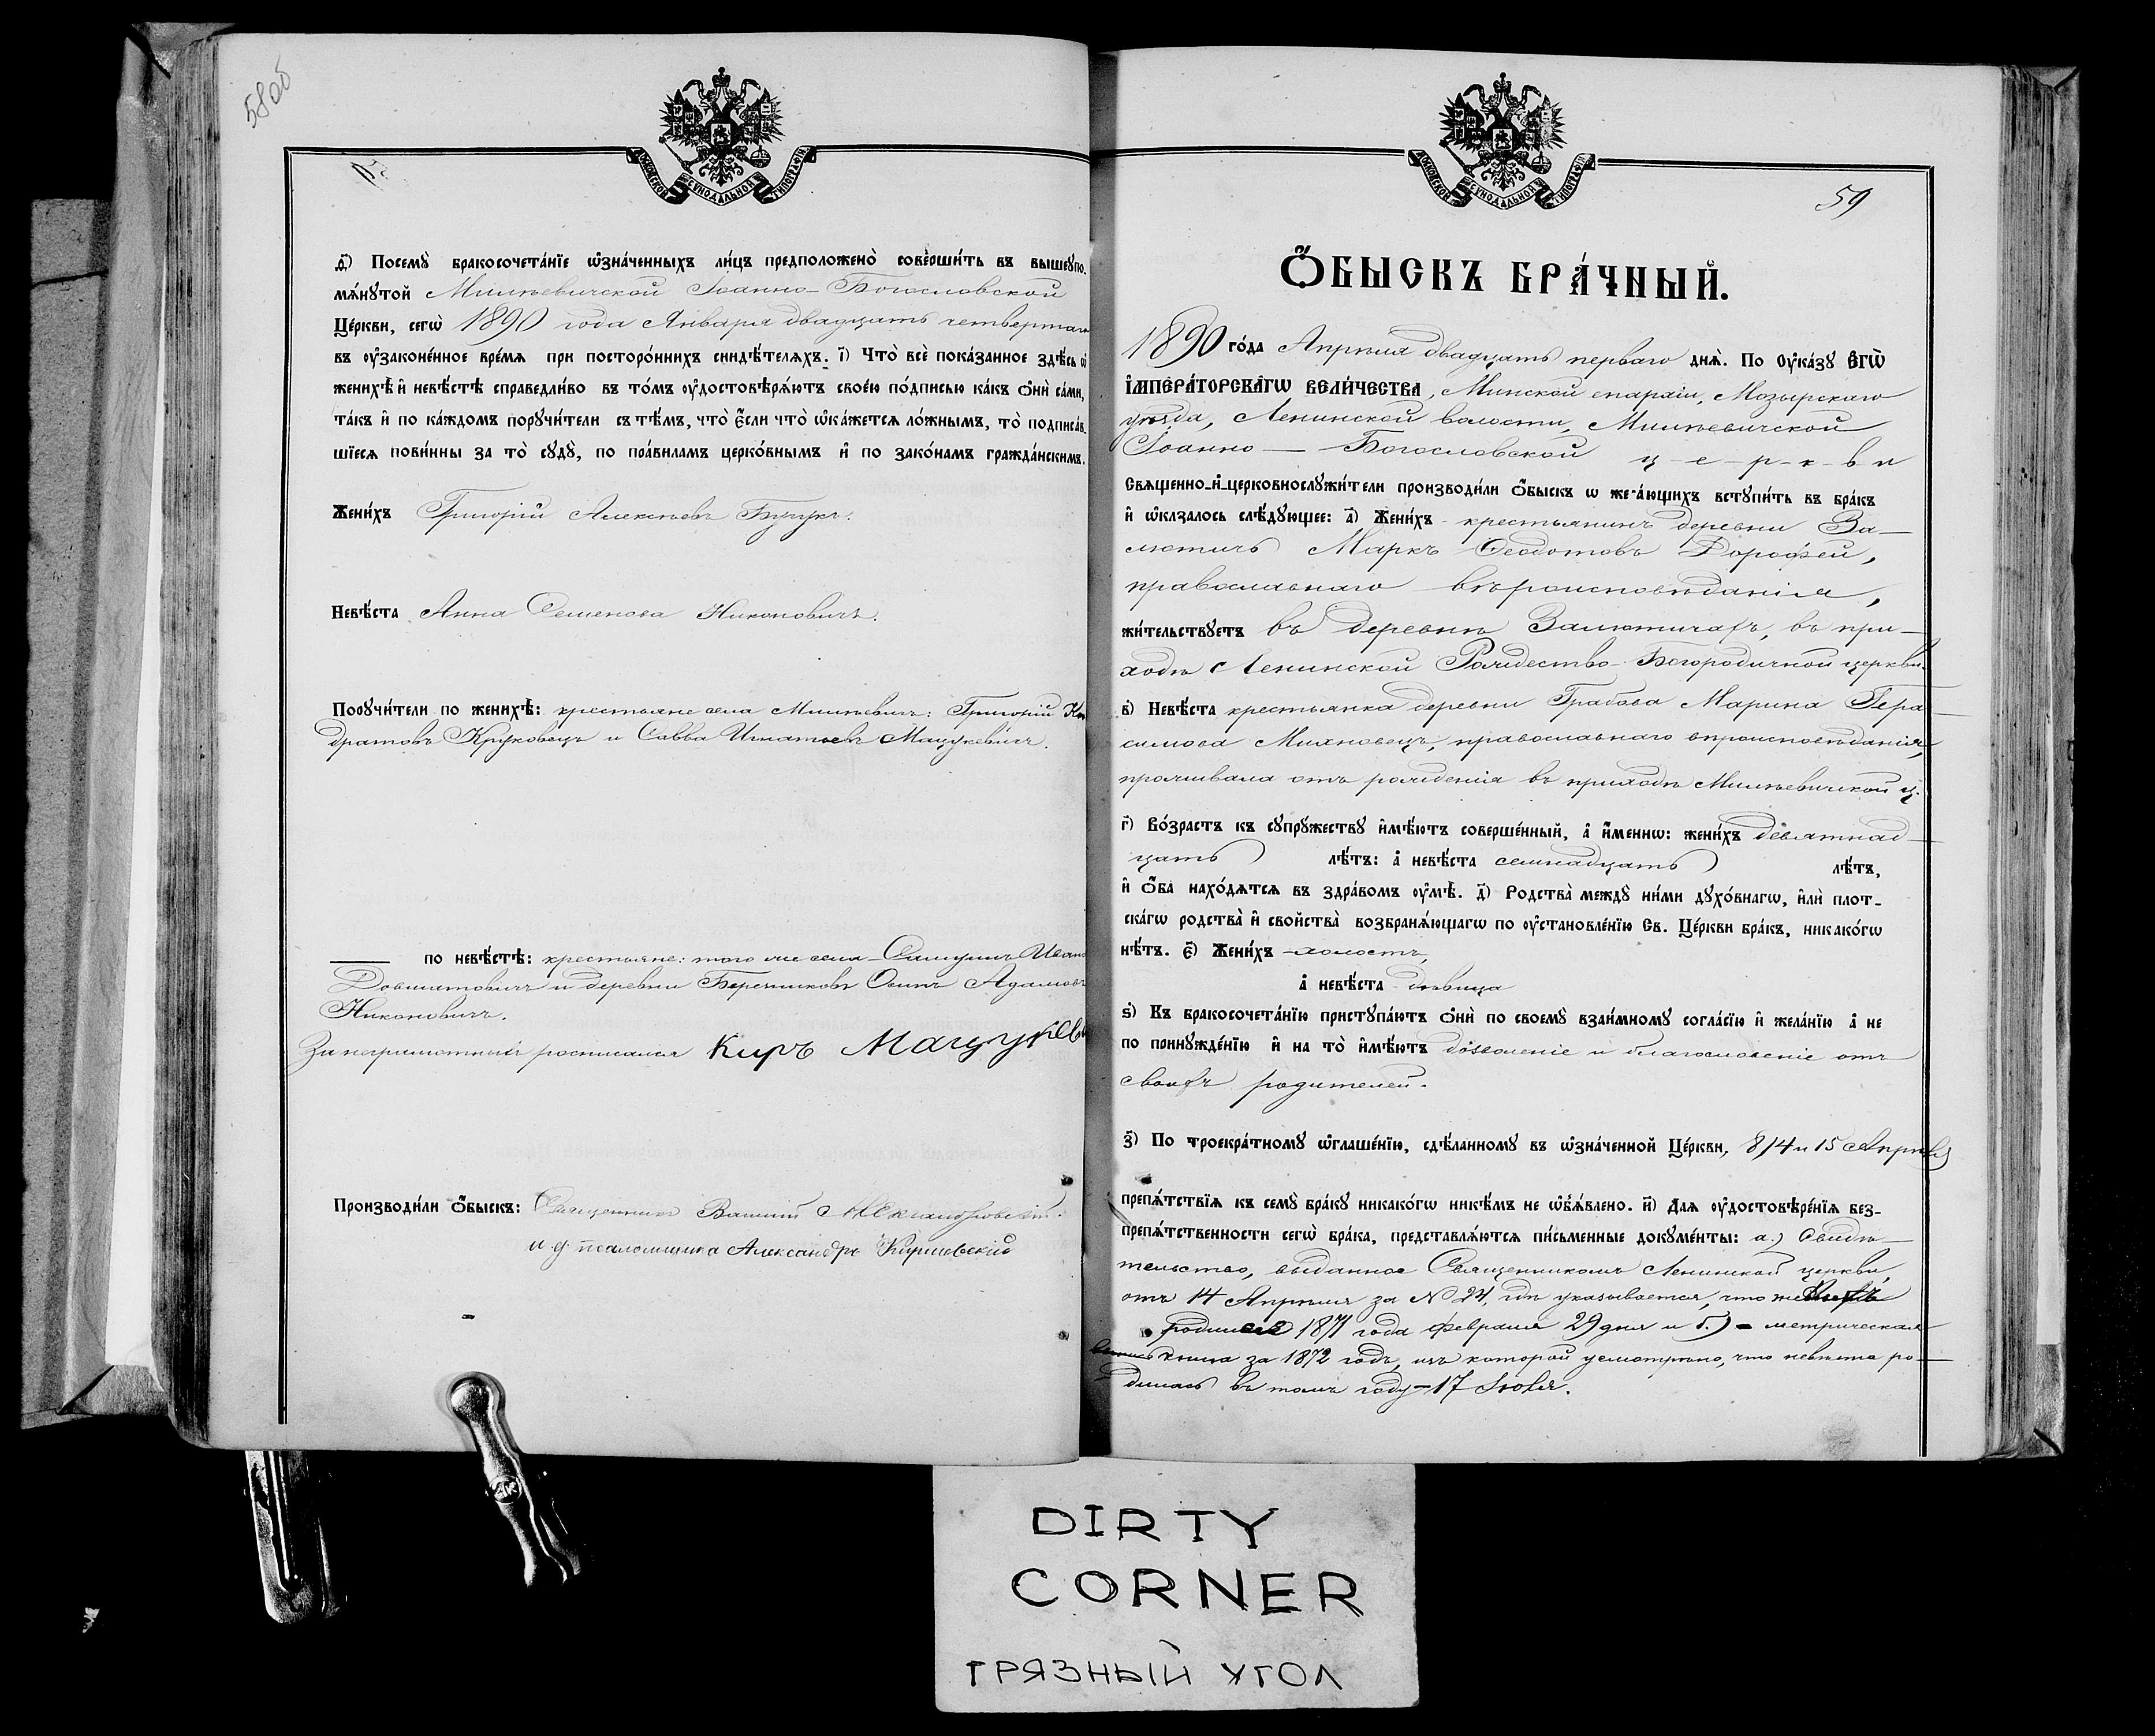 58 об
МОСКОВСКОЙ СУНОДАЛЬНОЙ ТИПОГРАФІИ
д҃і) Посемꙋ̀ бракосочета́нїе ѡ҆зна́ченныхъ ли́цъ предположено̀ соверши́ть въ вышеꙋпо-
мѧ́нꙋтой Милѣевичской Іоанно-Богословской
Це́ркви, сегѡ̀ 1890 года Января двадцать четвертаго
въ ᲂу҆законе́нное вре́мѧ при посторо́ннихъ свидѣ́телѧхъ. і҃) Что̀ всѐ пока́занное здѣ́сь ѡ҆
женихѣ̀ и҆ невѣ́стѣ справедли́во въ то́мъ ᲂу҆достовѣрѧ́ютъ свое́ю по́дписью ка́къ ѻ҆нѝ са́ми,
та́къ и҆ по ка́ждомъ порꙋчи́тели съ тѣ́мъ, что̀ є҆́сли что̀ ѡ҆ка́жетсѧ ло́жнымъ, то̀ подписа́в-
шїесѧ пови́нны за то̀ сꙋдꙋ̀, по пра́виламъ церко́внымъ и҆ по зако́намъ гражда́нскимъ.
Жени́хъ Григорій Алексѣевъ Бучукъ.
Невѣ́ста Анна Семенова Никоновичъ.
Порꙋчи́тели по женихѣ̀: крестьяне села Милѣевичъ: Григорій Кон
дратовъ Круковецъ и Савва Игнатьевъ Мацукевичъ.
по невѣ́стѣ: крестьяне: того же села Самуилъ Иван
Довматовичъ и деревни Беречниковъ Осипъ Адамовъ
Никоновичъ.
За неграмотныхъ росписался Киръ Мацукев
Производи́ли ѻ҆́быскъ: Священникъ Василій
и д псаломщика Александръ Киршевскій
МОСКОВСКОЙ СУНОДАЛЬНОЙ ТИПОГРАФІИ
59
Ѻ҆́БЫСКЪ БРА́ЧНЫЙ.
1890 го́да Апрѣля двадцать перваго днѧ̀. По ᲂу҆ка́зꙋ Є҆ГѠ̀
І҆МПЕРА́ТОРСКАГѠ ВЕЛИ́ЧЕСТВА, Минской епархіи, Мозырскаго
уѣзда, Ленинской волости, Милѣевичской
Іоанно — Богословской ц-е-р-к-в-и
Сващенно-и҆-церковнослꙋжи́тели производи́ли ѻ҆́быскъ ѡ жела́ющихъ встꙋпи́ть въ бра́къ
и҆ ѡ҆казалось слѣ́дꙋющее: а҃) Жени́хъ крестьянинъ деревни За-
лютичь Маркъ Ѳеодотовъ Дорофѣй,
православнаго вѣроисповѣданія,
жи́тельствꙋетъ въ деревнѣ Залютичахъ, въ при-
ходѣ Ленинской Рождество-Богородичной церкви.
в҃) Невѣ́ста крестьянка деревни Грабова Марина Гера-
симова Михновецъ, православнаго вѣроисповѣданія,
проживала отъ рожденія въ приходѣ Милѣевичской ц.
г҃) Во́зрастъ къ сꙋпрꙋ́жествꙋ и҆мѣ́ютъ соверше́нный, а҆ и҆́меннѡ: жени́хъ девятнад-
цать лѣ́тъ: а҆ невѣ́ста семнадцать лѣ́тъ,
и҆ ѻ҆́ба нахо́дѧтсѧ въ здра́вомъ ᲂу҆мѣ̀. д҃) Родства̀ междꙋ̀ ни́ми дꙋхо́внагѡ, и҆лѝ плот-
ска́гѡ родства̀ и҆ свойства̀ возбранѧ́ющагѡ по ᲂу҆становле́нїю Св. Це́ркви бра́къ, никако́гѡ
нѣ́тъ. є҃) Жени́хъ холостъ,
а҆ невѣ́ста дѣвица
ѕ҃) Къ бракосочета́нїю пристꙋпа́ютъ ѻ҆нѝ по своемꙋ̀ взаи́мномꙋ согла́сїю и҆ жела́нїю а҆ не
по принꙋжде́нїю и҆ на то̀ и҆мѣ́ютъ дозволеніе и благословеніе отъ
своихъ родителей.
з҃) По троекра́тномꙋ ѡ҆глаше́нїю, сдѣ́ланномꙋ въ ѡ҆зна́ченной Це́ркви, 8, 14 и 15 Апрѣля
препѧ́тствїѧ къ семꙋ̀ бра́кꙋ никако́гѡ никѣ́мъ не ѡ҆б̾ѧ́влено. и҃) Длѧ ᲂу҆достовѣре́нїѧ без-
препѧ́тственности сегѡ̀ бра́ка, представлѧ́ютсѧ пи́сьменные докꙋме́нты: а.) Свидѣ-
тельство, выданное Священникомъ Ленинской церкви,
отъ 14 Апрѣля за № 24, гдѣ указывается, что женихъ
родился 1871 года февраля 29 дня и б.) - метрическая
книга за 1872 годъ, изъ которой усмотрѣно, что невѣста ро-
дилась въ томъ году - 17 Іюля.
DIRTY
CORNER
ГРЯЗНЫЙ УГОЛ